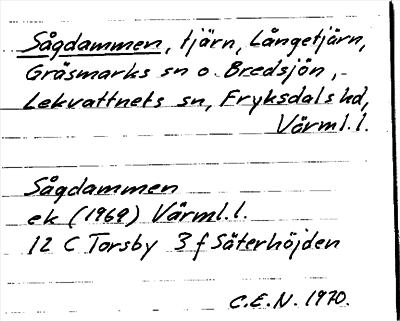 Sågdammen, tjärn, Långetjärn,
Gräsmarks sn o. Bredsjön,
Lekvattnets sn, Fryksdals hd,
Värml.l.
Sågdammen
ek (1969) Värml.l.
12 C Torsby 3 f Säterhöjden
C.E.N. 1970.